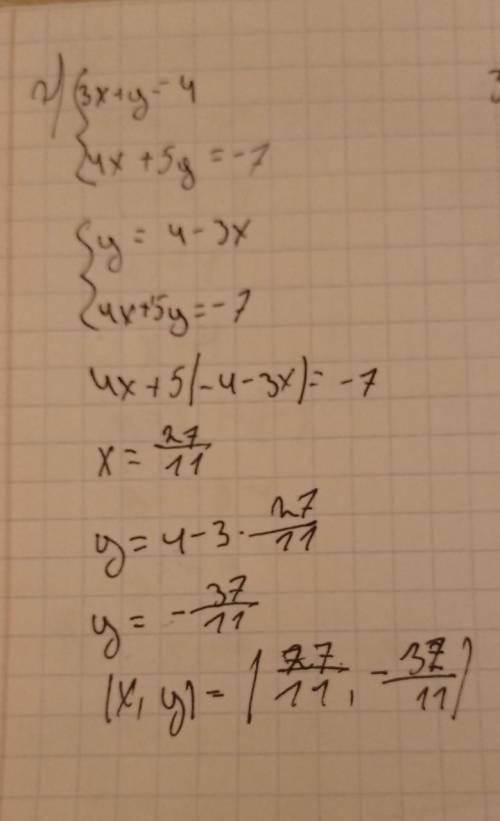 2) {3x+y=4
{4x+5y=-7
{y=4-3x
{4x+5y=-7
4x+5(-4-3x)=-7
x=27/11
y=4-3·27/11
y=-37/11
(x, y)=(27/11, -37/11)